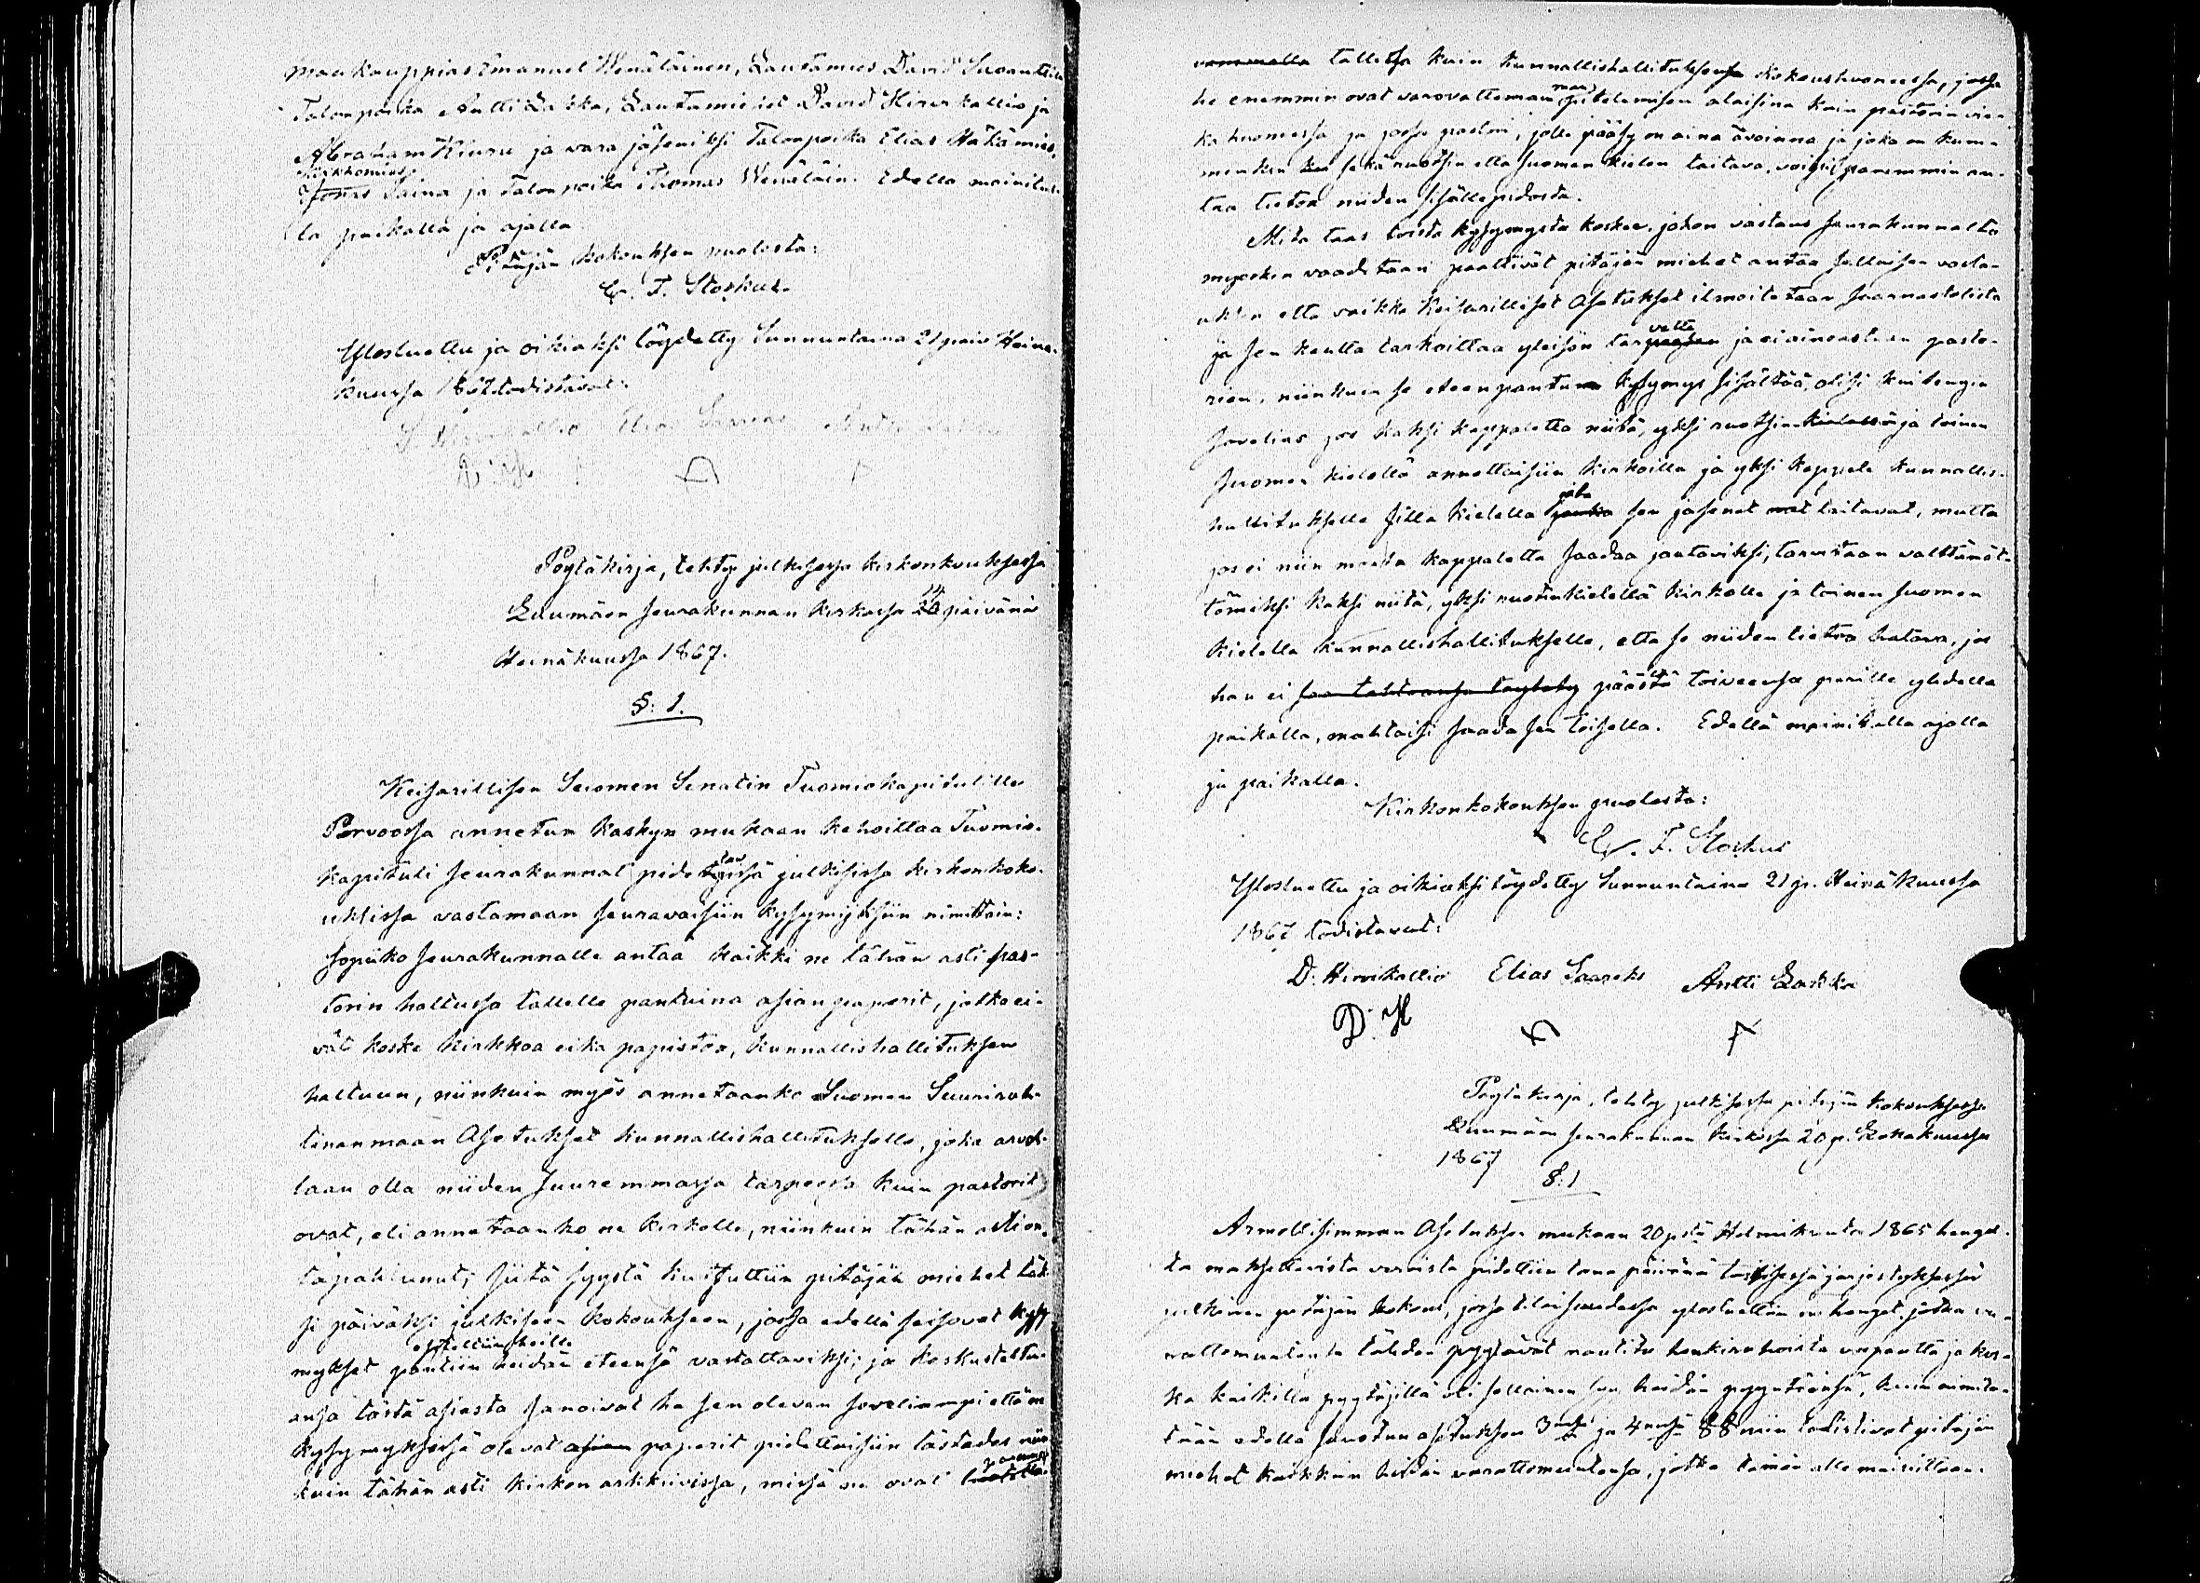 maakauppias Emanuel Wenäläinen, Lautamies David Suoanttila
Talonpoika Antti Lakka, Lautamiehet David Hirvikallio ja
Abraham Kiuru ja vara jäseniksi Talonpoika Elias Hakamies,
Kirkkomies
Saina ja Talonpoika Thomas Wenäläin. Edella mainitul-
la paikalla ja ajalla
Pitäjän kokouksen puolesta:
C. F. Storkus.
Ylosluettu ja oikiaksi löydetty Sunnuntaina 21 paiv Heinä-
kuussa 1867 todistavat:
D. H
Poytäkirja, tehty julkisessa kirkonkouksessa
Luumäen seurakunnan kirkossa 14 päivänä
Heinäkuussa 1867.
§: 1.
Keisarillisen Suomen Senatin Tuomiokapitulille
Porvoossa annetun kaskyn mukaan kehoittaa Tuomio-
kapituli seurakunnat pidettävissä julkisissa kirkonkoko-
uksissa vastamaan seuravaisiin kysymyksiin nimittäin:
Sopiiko seurakunnalle antaa kaikki ne tähän asti pas-
torin haltussa tallelle pantuina asian paperit, jotka ei-
vät koske kirkkoa eika papistoa, kunnallishallituksen
haltuun, niinkuin myös annetaanko Suomen Suuriruh-
tinanmaan Asetukset kunnallishallitukselle, joka arvel-
laan olla niiden suuremmassa tarpeessa kuin pastorit
ovat, eli annetaanko ne kirkolle, niinkuin tähän asti on
tapahtunut; siitä syystä kutsuttiin pitäjän miehet täk-
si päiväksi julkiseen kokoukseen, jossa edellä seisovat kysy
esiteltiin heille
mykset pantiin heidän eteensä vastattaviksi; ja keskusteltu-
ansa tästä asiasta sanoivat he sen olevan soveliampi että ne
kysymyksessä olevat asian paperit pidettäisiin tästädes niin
paremasti
kuin tähän asti kirkon arkkivissa, missä ne ovat
vammalla tallessa kuin kunnallishallituksensa kokoushuoneessa, jossa
he enemmin ovat varovattoman pitelemisen alaisina kuin pastorin vir-
kahuoneessa ja jossa pastori, jolle pääsy on aina avoinna ja joka on kum-
menkin sekä ruotsin etta suomen kielen taitava, voipi paremmin an-
taa tietoa niiden sisällepidosta.
Mita taas toista kysymysta koskee, johon vastaus seurakunnalta
myoskin vaaditaan paattivät pitäjän miehet antaa sellaisen vasta-
uksen etta vaikka Keisarilliset Asetukset ilmoitetaan saarnastolista
vetta
ja sen kautta tarkoittaa yleisön tarpeeseen ja ei ainoastaan pasto-
rien, niinkuin se eteenpantu kysymys sisältää, olisi kuitengin
sovelias jos kaksi kappaletta niitä, yksi ruotsin kielellä ja toinen
suomen kielellä annettaisiin kirkoille ja yksi kappale kunnallis-
hallitukselle sillä kielella jota sen jasenet taitavat, mutta
jos ei niin monta kappaletta saadaa jaetaviksi, tarvitaan välttämät-
tömiksi kaksi niitä, yksi ruotinkielellä kirkolle ja toinen suomen
kielella kunnallishallitukselle, etta se niiden tietoa halava, jos
han ei saa tahtoansa taytety päästä toiveensa perille yhdella
paikalla, mahtaisi saada sen toisella. Edellä mainitulla ajalla
ja paikalla.
Kirkonkokouksen puolesta:
C. F. Storkus
Ylosluettu ja oikiaksi löydetty Sunnuntaina 21 p. Heinäkuussa
1867 todistavat:
D. Hirvikallio Elias Saareks Antti Lakka
D. H
Poytakirja, tehty julkisessa pitäjän kokouksessa
Luumäen seurakunnan kirkossa 20 p. Lokakuussa
1867
§: 1
Armollisimman Asetuksen mukaan 20 p:stä Helmikuuta 1865 hengel-
ta maksettavista veroista pidettiin tana päivänä laillisessä jarjestyksessä
julkinen pitäjän kokous, jossa tilaisuudessa ylosluettiin ne henget, jotka va-
rattomuutensa tähden pyytävät nautita henkirahoista vapautta ja kos-
ka kaikilla pyytäjillä oli sellainen syy heidän pyyntöönsä, kuin nimite-
tään edella sanotun asetuksen 3:nessa ja 4:nessä §§ niin todistivat pitäjän
miehet kaikkiin heidän varattomuutensa, jotka tämän alle mainittaan.